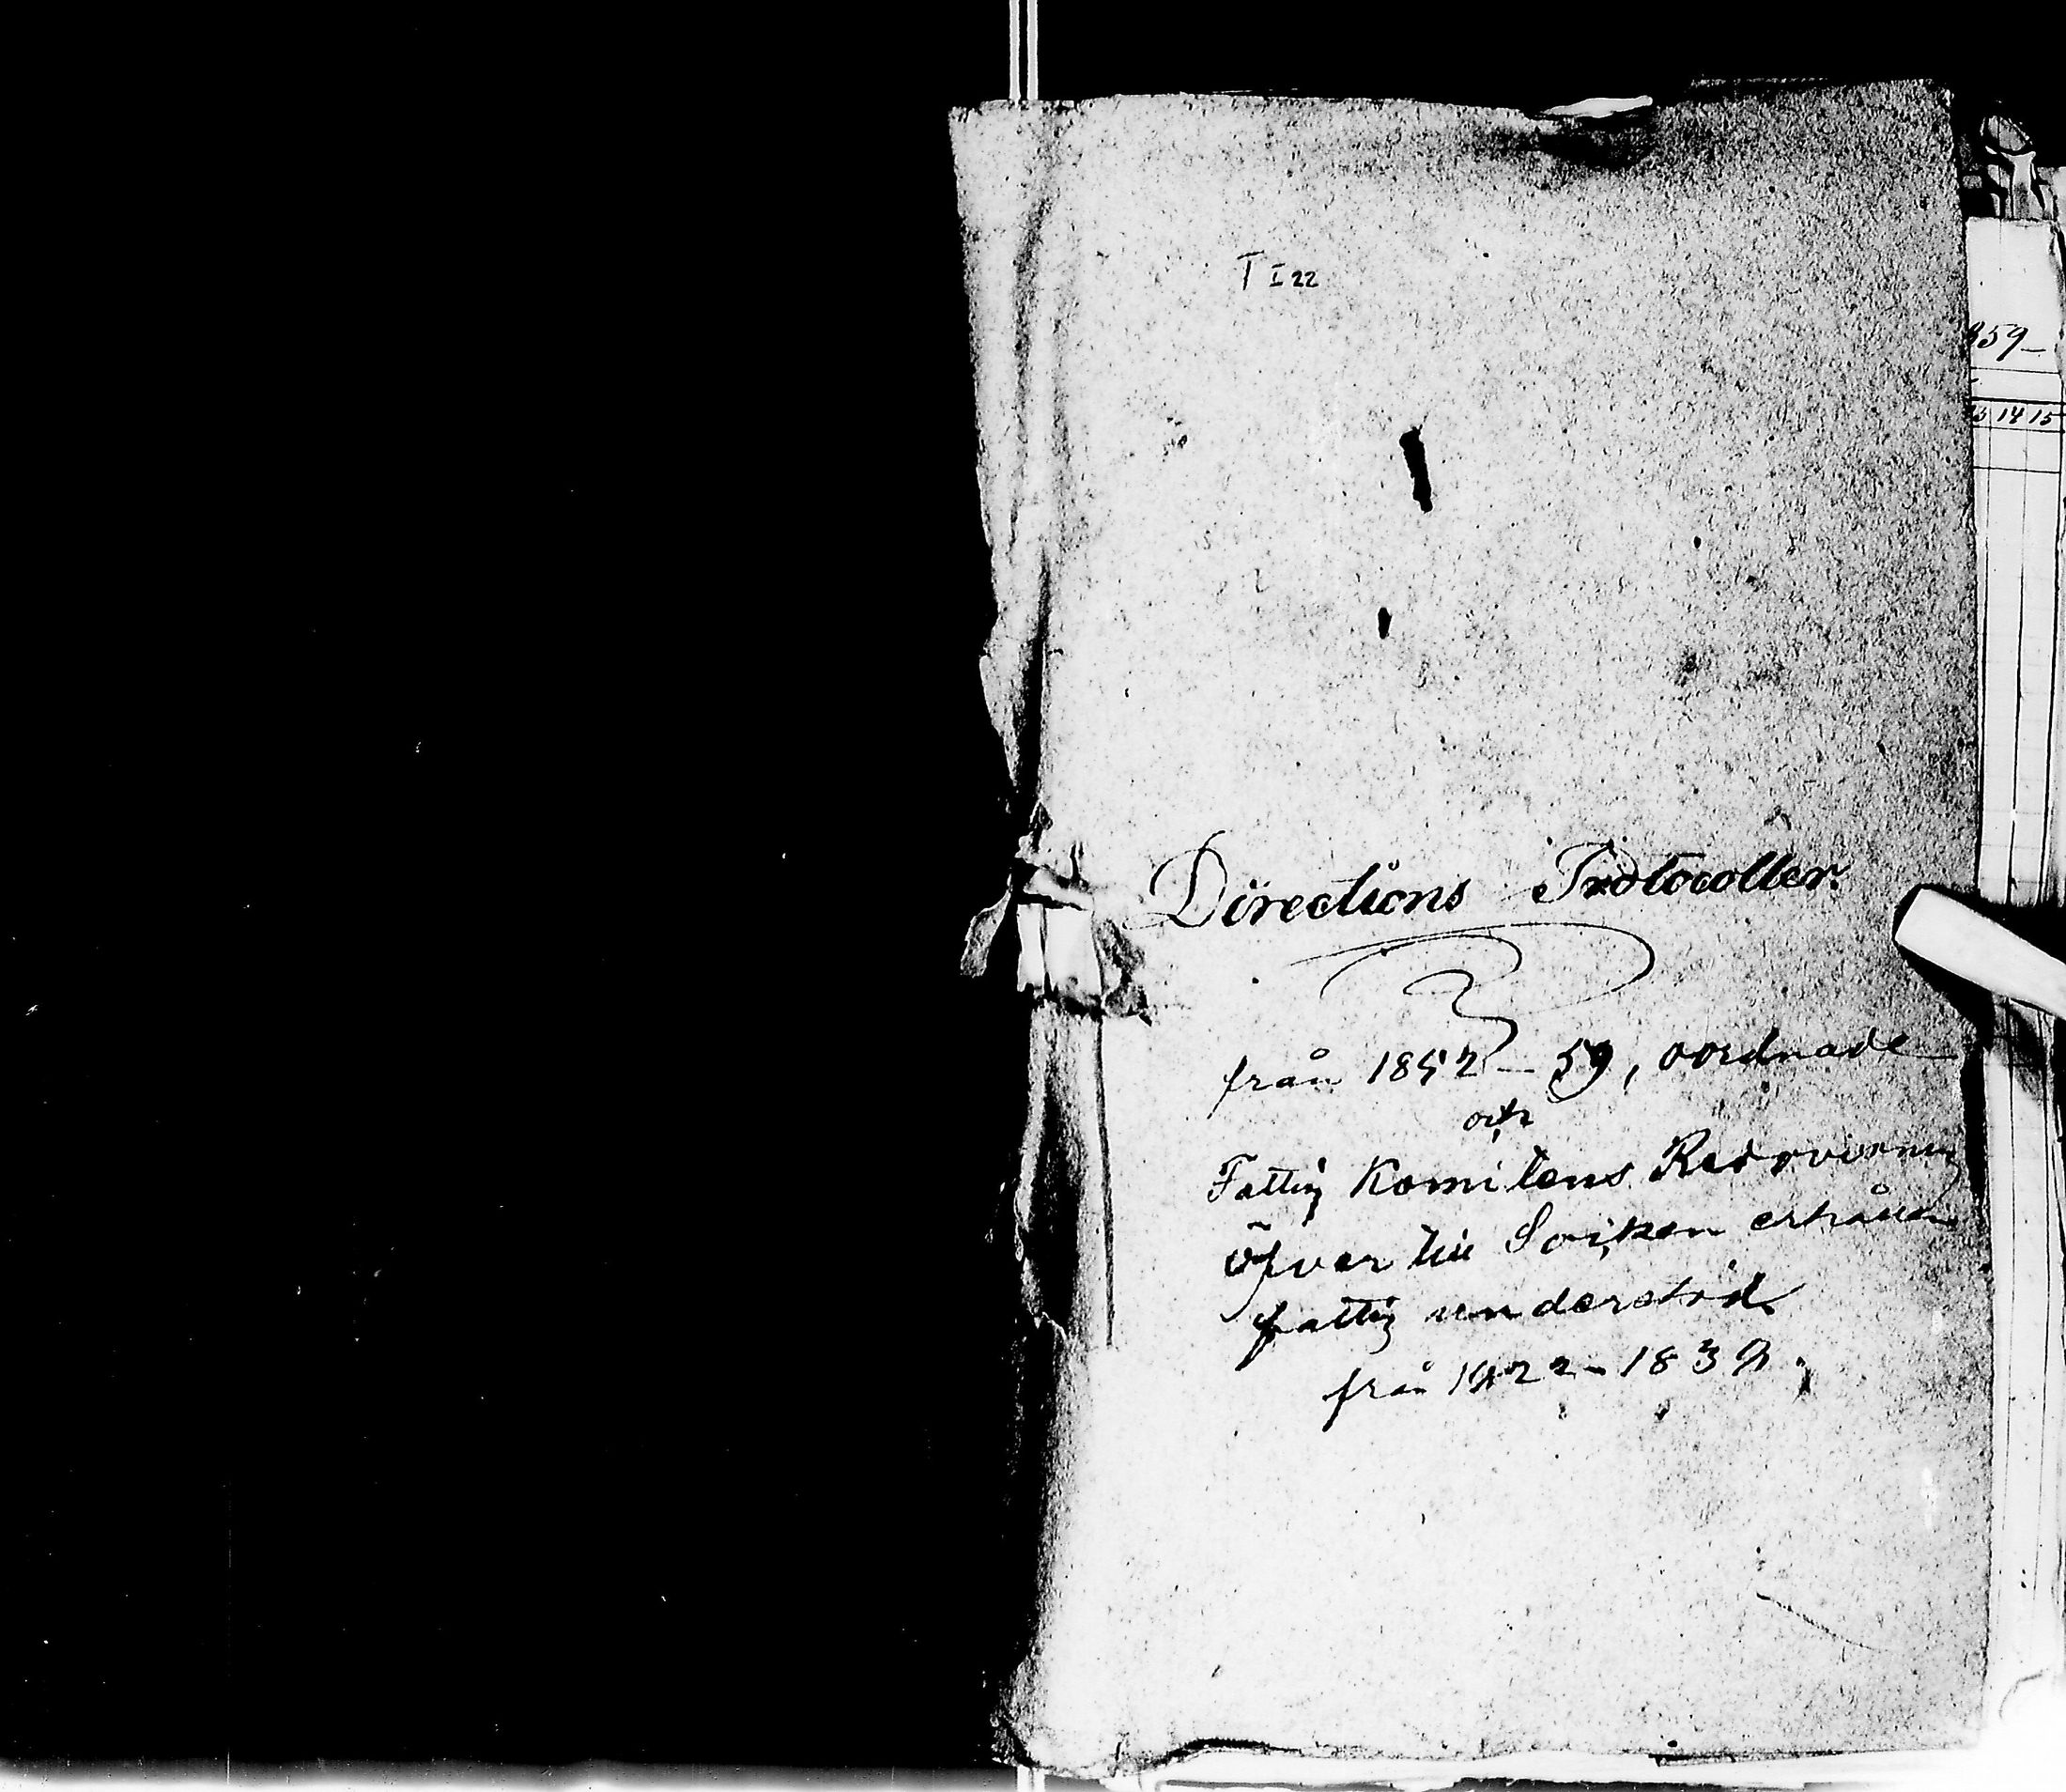 T I 22
Directions Protocoller.
från 1852 – 59, oordnade
och
Fattig Komitens Redovisning
öfver till Socken erhållen
fattig understöd
från 1822 – 1839.
859 –
14 15